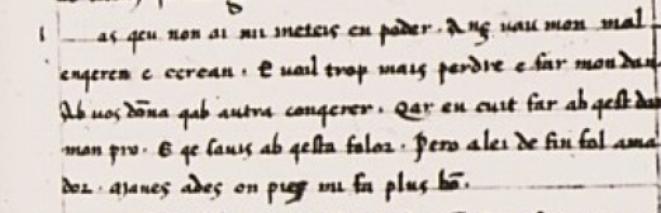 l as qeu non ai mi meteis en poder. Ans uau mon mal
enqeren e cercan. E uoil trop mais perdre e far mon dan
Ab uos dōna qab autra conqerer. Qar eu cuit far ab qest dan
mon pro. E qe sauis ab qesta folor. Pero a lei de fin fol ama
dor. manes ades on pieg mi fa plus bō.